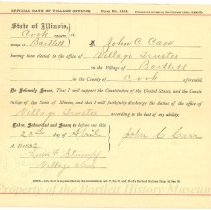 OFFICIAL OATH OF VILLAGE OFFICER.
State of Illinois,
Cook County, ss.
Bartlett
I, John C. Carr
having been elected to the office of Village Trustee
in the Village of Bartlett
in the County of Cook aforesaid,
Do Solemnly Swear, that I will support the Constitution of the United States, and the Constitution
of the State of Illinois, and that I will faithfully discharge the duties of the office of
Village Trustee according to the best of my ability.
Taken, Subscribed and Sworn to before me this
22 day of April
John C Carr
Village Clerk
Property of the Bartlett History Museum